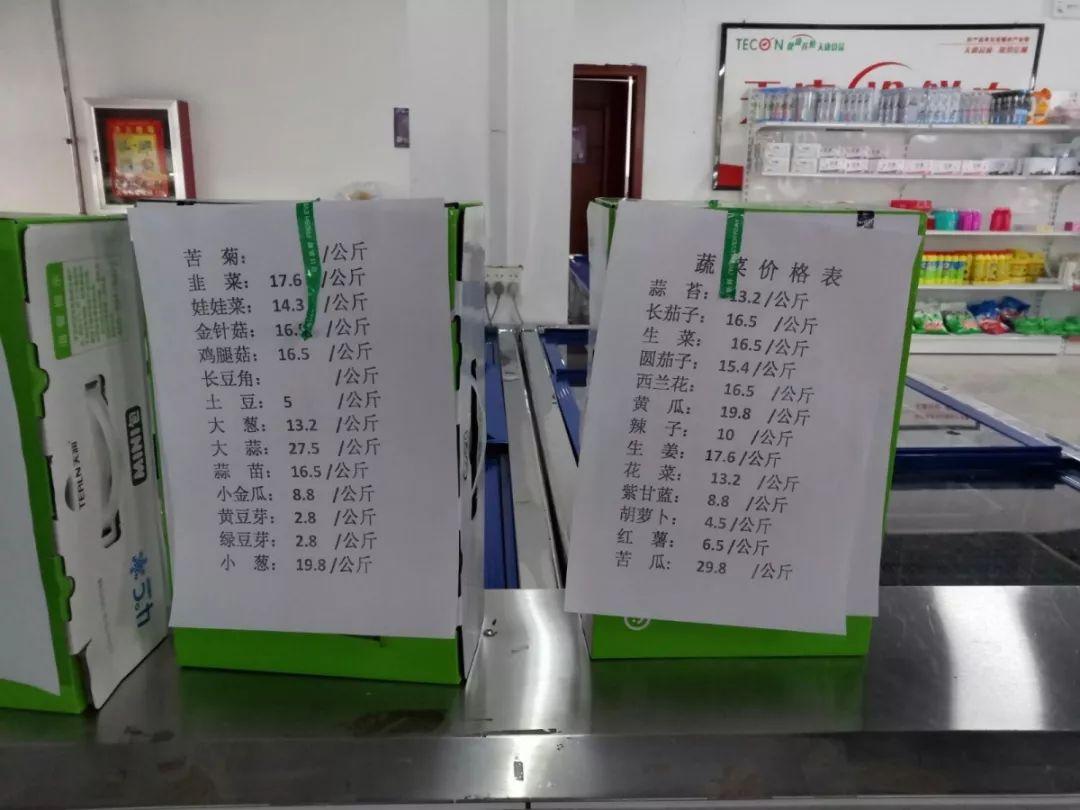 TECON
苦 菊： /公斤
韭 菜： 17.6 /公斤
娃娃菜： 14.3 /公斤
金针菇： 16. /公斤
鸡腿菇： 16.5 /公斤
长豆角： /公斤
土 豆： 5 /公斤
大 葱： 13.2 /公斤
大 蒜： 27.5 /公斤
蒜 苗： 16.5 /公斤
小金瓜： 8.8 /公斤
黄豆芽： 2.8 /公斤
绿豆芽： 2.8 /公斤
小 葱： 19.8 /公斤
蔬 菜 价 格 表
蒜 苔： 13.2 /公斤
长茄子： 16.5 /公斤
生 菜： 16.5 /公斤
圆茄子： 15.4 /公斤
西兰花： 16.5 /公斤
黄 瓜： 19.8 /公斤
辣 子： 10 /公斤
生 姜： 17.6 /公斤
花 菜： 13.2 /公斤
紫甘蓝： 8.8 /公斤
胡萝卜： 4.5 /公斤
红 薯： 6.5 /公斤
苦 瓜： 29.8 /公斤
MINI包